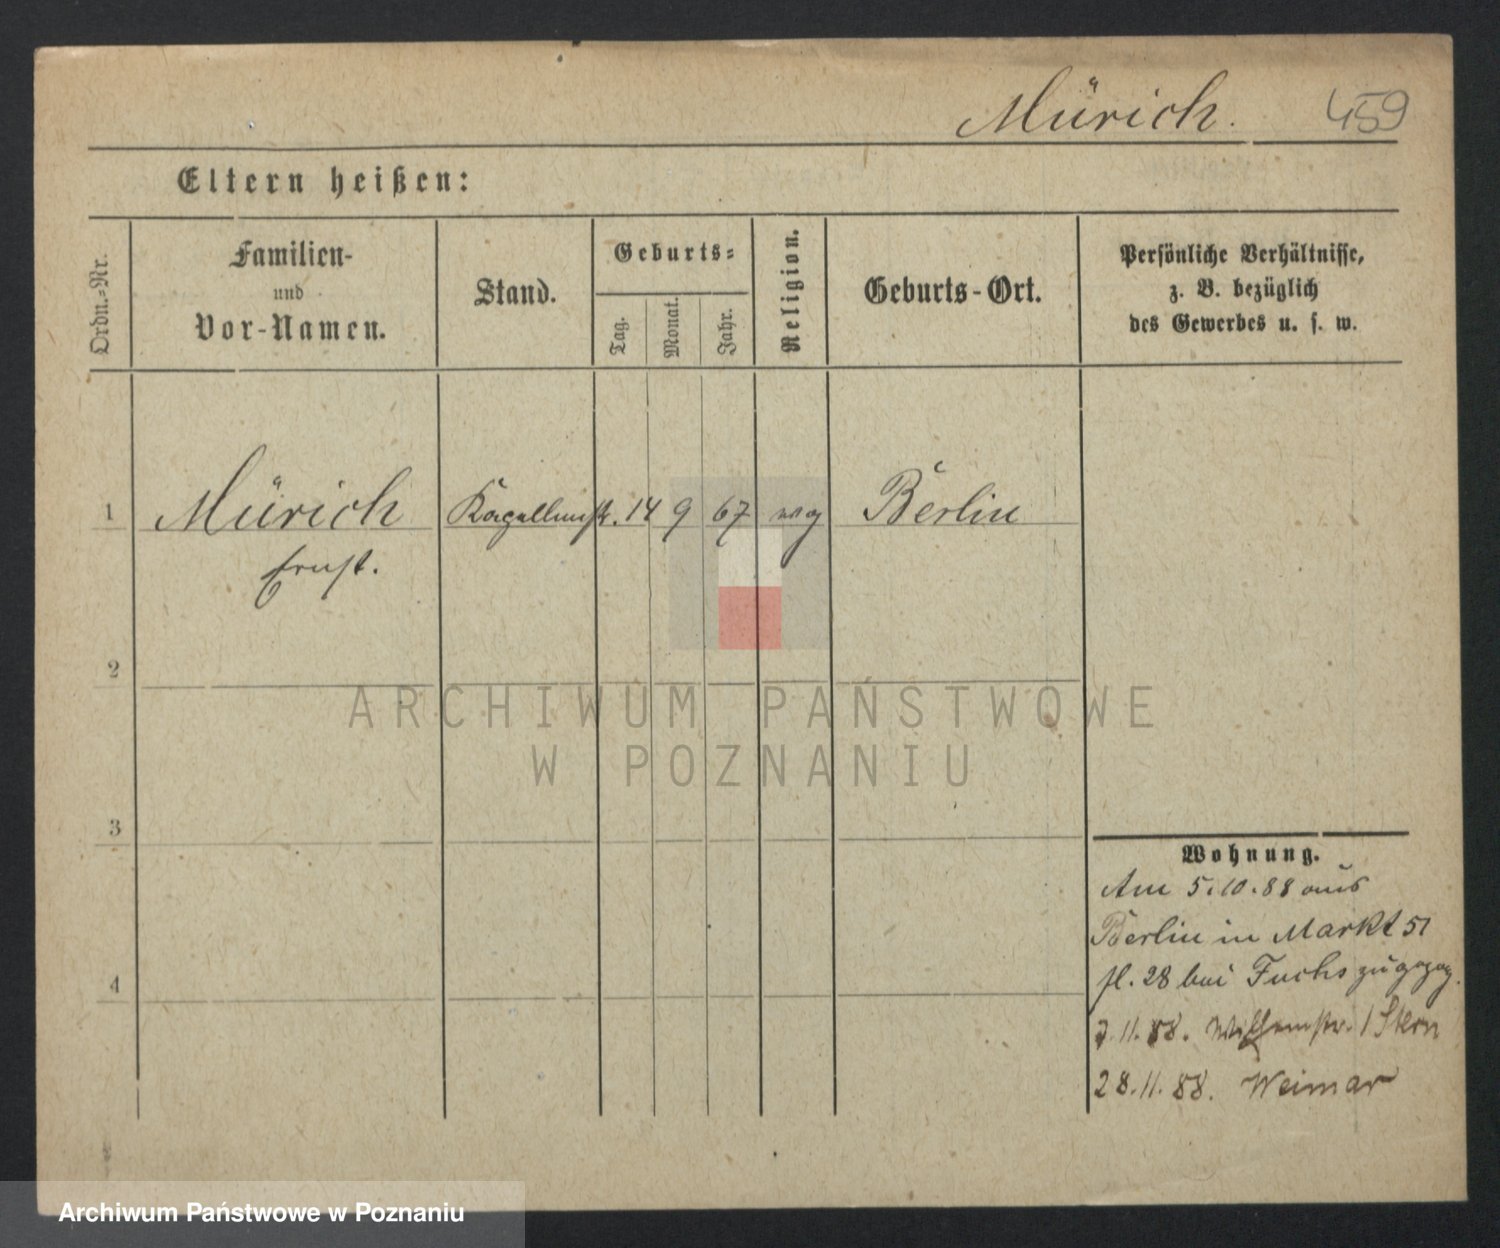 Mürich. 459
Eltern heißen:
Ordn.-Nr.
Familien-
und
Vor-Namen.
Stand.
Geburts-
Tag.
Monat.
Jahr.
Religion.
Geburts-Ort.
Persönliche Verhältnisse,
z. B. bezüglich
des Gewerbes u. s. w.
1 Mürich 14 9 67 Berlin
Ernst.
2
3
4
Wohnung.
Am 5.10.88 aus
Berlin in Markt 51
fl. 28 bei Fuchs zugezog.
7.11.88. Wilhelmstr. 1 Stern
28.11.88. Weimar
ARCHIWUM PAŃSTWOWE
W POZNANIU
Archiwum Państwowe w Poznaniu